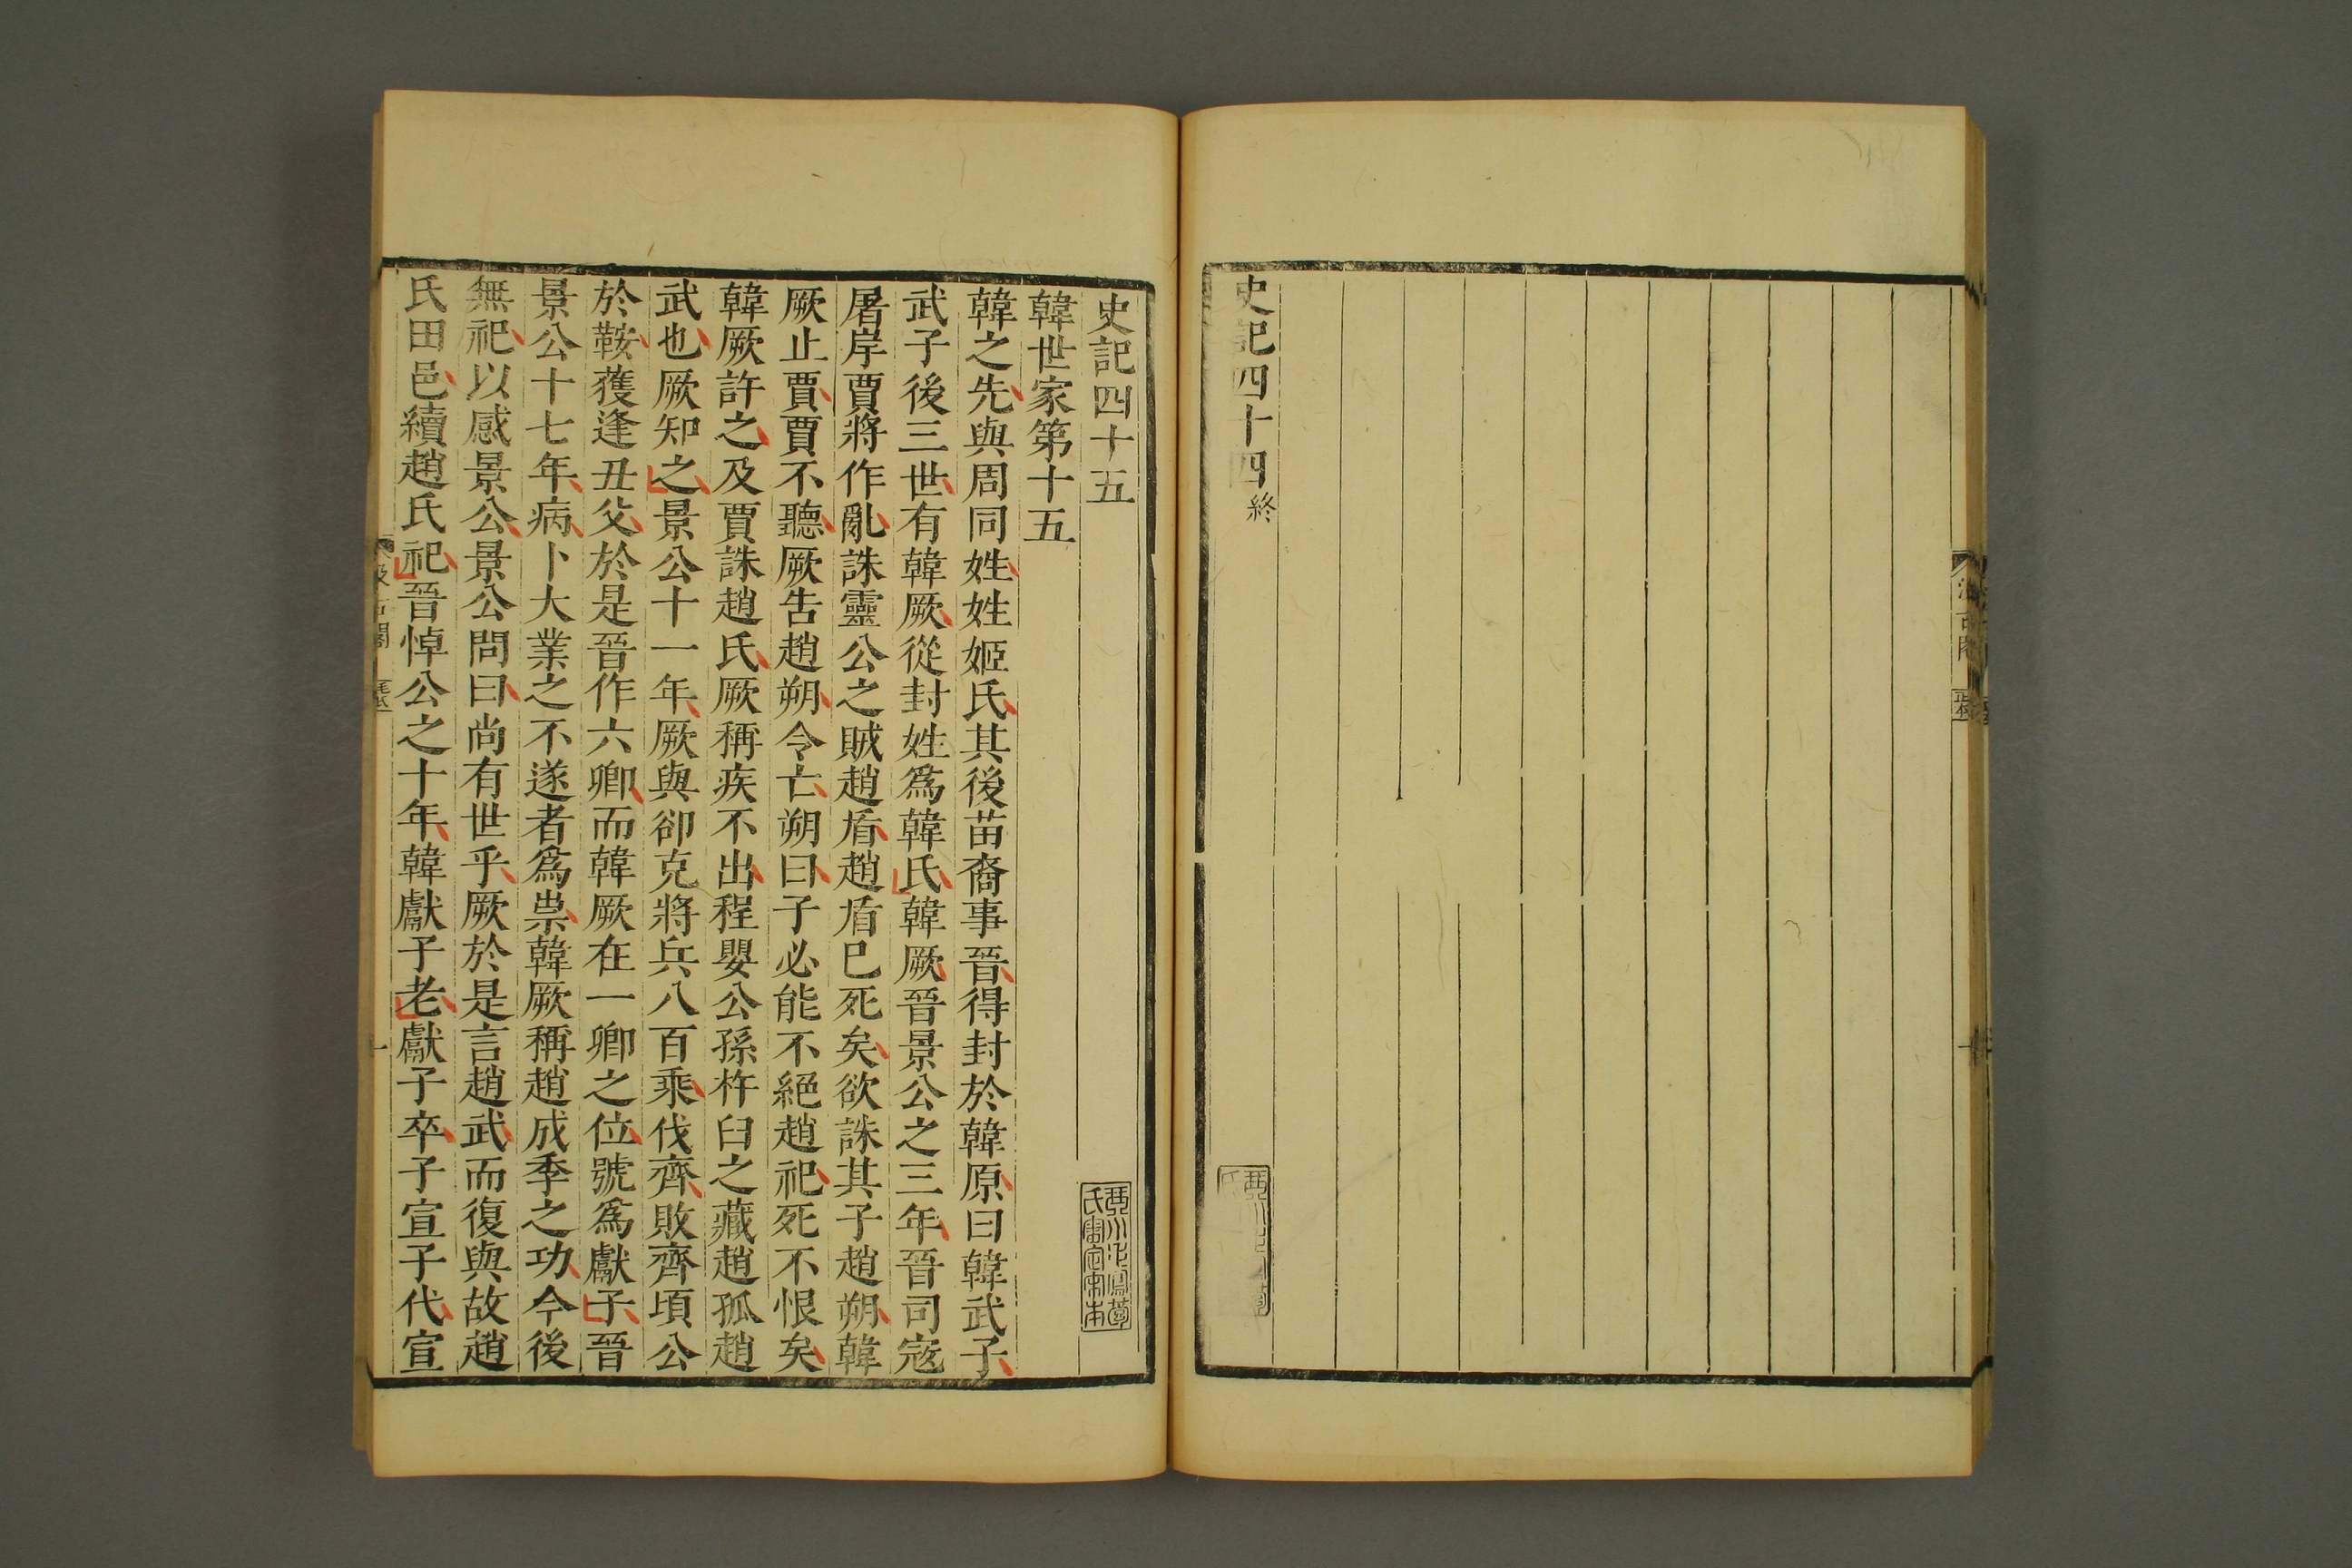 史記四十四終
史記四十五
韓世家第十五
韓之先與周同姓姓姬氏其後苗裔事晉得封於韓原曰韓武子
武子後三世有韓厥從封姓爲韓氏韓厥晉景公之三年晉司寇
屠岸賈將作亂誅靈公之賊趙盾趙盾已死矣欲誅其子趙朔韓
厥止賈賈不聽厥告趙朔令亡朔曰子必能不絕趙祀死不恨矣
韓厥許之及賈誅趙氏厥稱疾不出程嬰公孫杵臼之藏趙孤趙
武也厥知之景公十一年厥與郤克將兵八百乘伐齊敗齊頃公
於鞍獲逢丑父於是晉作六卿而韓厥在一卿之位號爲獻子晉
景公十七年病卜大業之不遂者爲祟韓厥稱趙成季之功今後
無祀以感景公景公問曰尚有世乎厥於是言趙武而復與故趙
氏田邑續趙氏祀晉悼公之十年韓獻子老獻子卒子宣子代宣